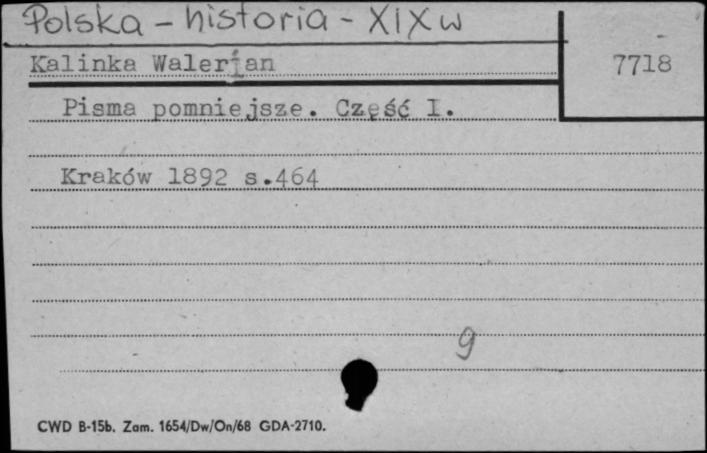 Polska - historia - XIX w
Kalinka Walerjan
7718
Pisma pomniejsze. Część I.
Kraków 1892 s.464
g
CWD B-15b. Zam. 1654/Dw/On/68 GDA-2710.